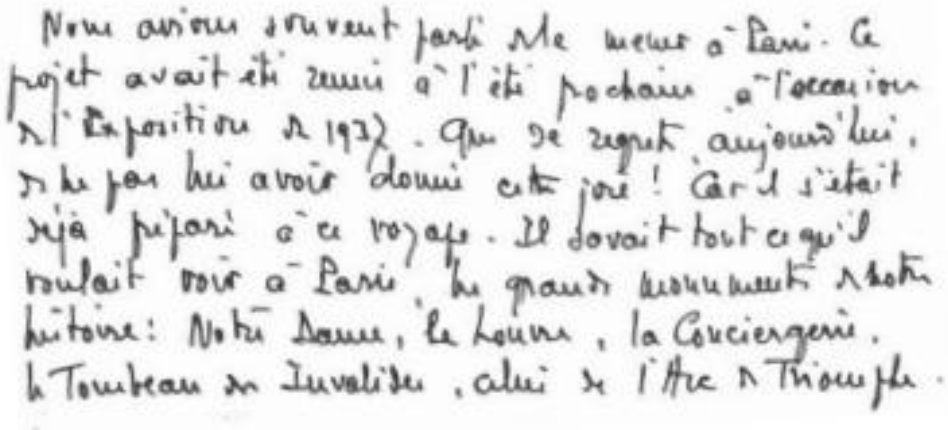 Nous avions souvent parlé de mener à Paris. Ce
projet avait été remis à l'été prochain, à l'occasion
de l'Exposition de 1937. Que de regrets, aujourd'hui,
de ne pas lui avoir donné cette joie ! Car il s'était
déjà préparé à ce voyage. Il savait tout ce qu'il
voulait voir à Paris, les grands monuments de notre
histoire : Notre Dame, le Louvre, la Conciergerie,
le Tombeau des Invalides, celui de l'Arc de Triomphe.